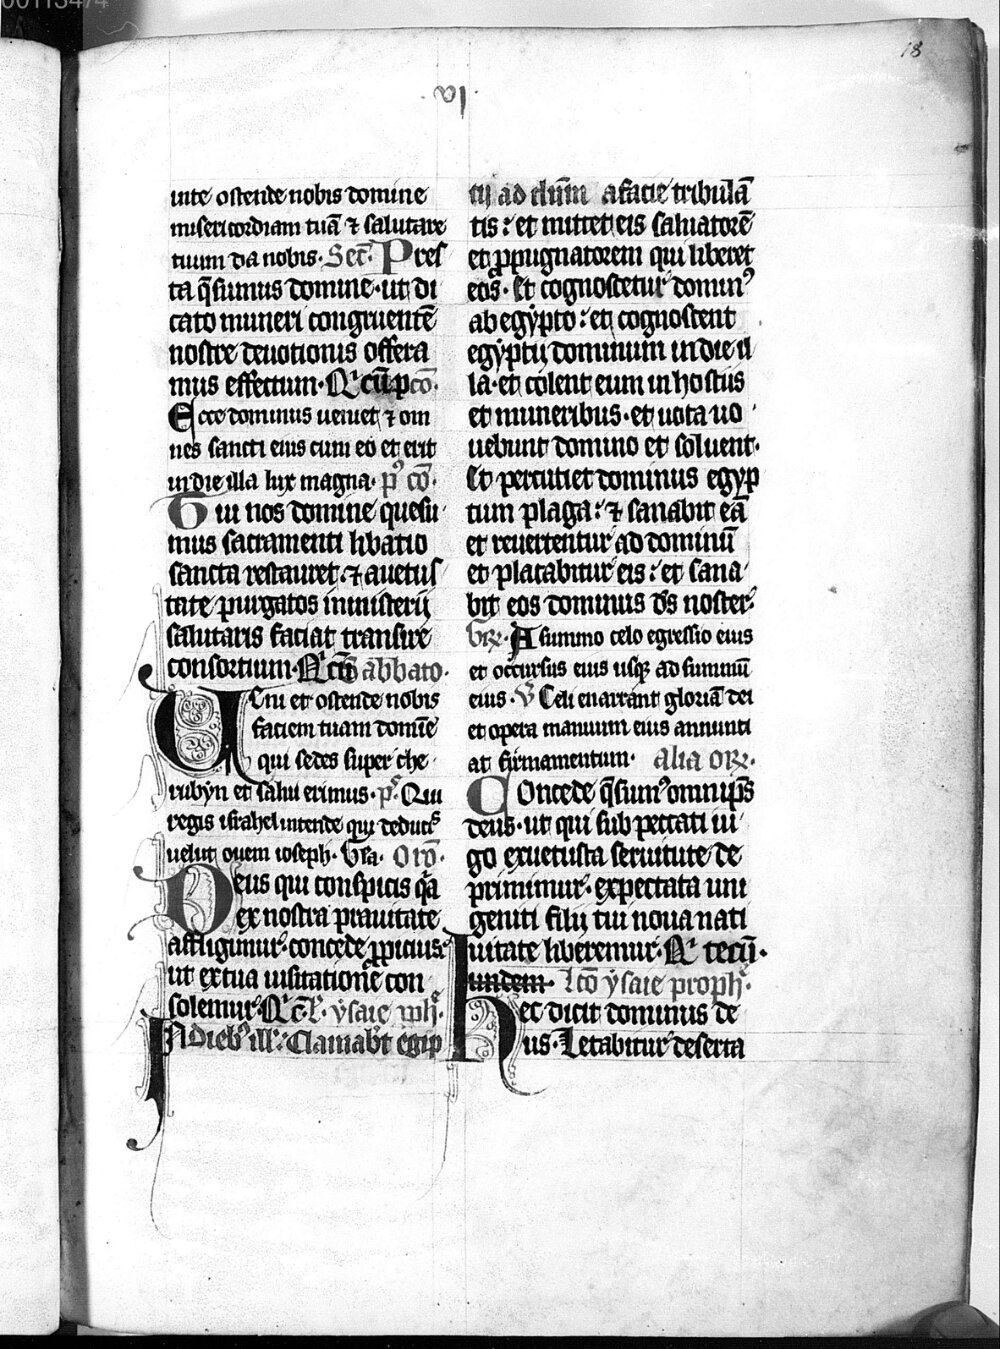 00113474
18
·VI·
inte ostende nobis domine
misericordiam tuā ⁊ salutare
tuum da nobis· Secͬ. Pres
ta q̄sumus domine· ut di
cato muneri congruentē
nostre deuotionis offera
mus effectum· cū p cō·
Ecce dominus ueniet ⁊ om
nes sancti eius cum eo et erit
in die illa lux magna· p᾿ cō·
Tui nos domine quesu
mus sacramenti libatio
sancta restauret· ⁊ a uetus
tate purgatos in misterii
salutaris faciat transire
consortium· Sabbato·
Ueni et ostende nobis
faciem tuam domīe
qui sedes super che
rubyn et salui erimus· p̄᾿ Qui
regis israhel intende qui deducis
uelut ouem ioseph· Orō·
Deus qui conspicis q̄a
ex nostra prauitate
affligimur· concede ꝓpicius
ut ex tua uisitatione con
solemur· ysaie ꝓph̄·
IN dieb᾿ ill᾿· Clamab̄t egip
tij ad dn̄m a facie tribulā
tis : et mittet eis saluatorē
et ꝓpugnatorem qui liberet
eos· Et cognoscetur domin᾿
ab egypto : et cognoscent
egyptij dominum in die il
la· et colent eum in hostiis
et muneribus· et uota uo
uebunt domino et soluent·
Et percutiet dominus egyp
tum plaga : ⁊ sanabit eā
et reuertentur ad dominū
et placabitur eis : et sana
bit eos dominus ds̄ noster·
A summo celo egressio eius
et occursus eius usq̨ ad summū
eius· V᾿ Celi enarrant gloriā dei
et opera manuum eius annunti
at firmamentum· Alia Or̄·
Concede q̄sum᾿ omnip̄s
deus· ut qui sub peccati iu
go ex uetusta seruitute de
primimur· expectata uni
geniti filij tui noua nati
uitate liberemur· tecū·
Lcō ysaie proph̄·
Hec dicit dominus de
us· Letabitur deserta